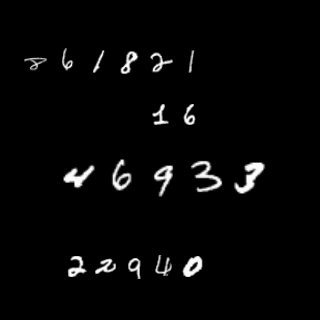 861821
16
46933
22940